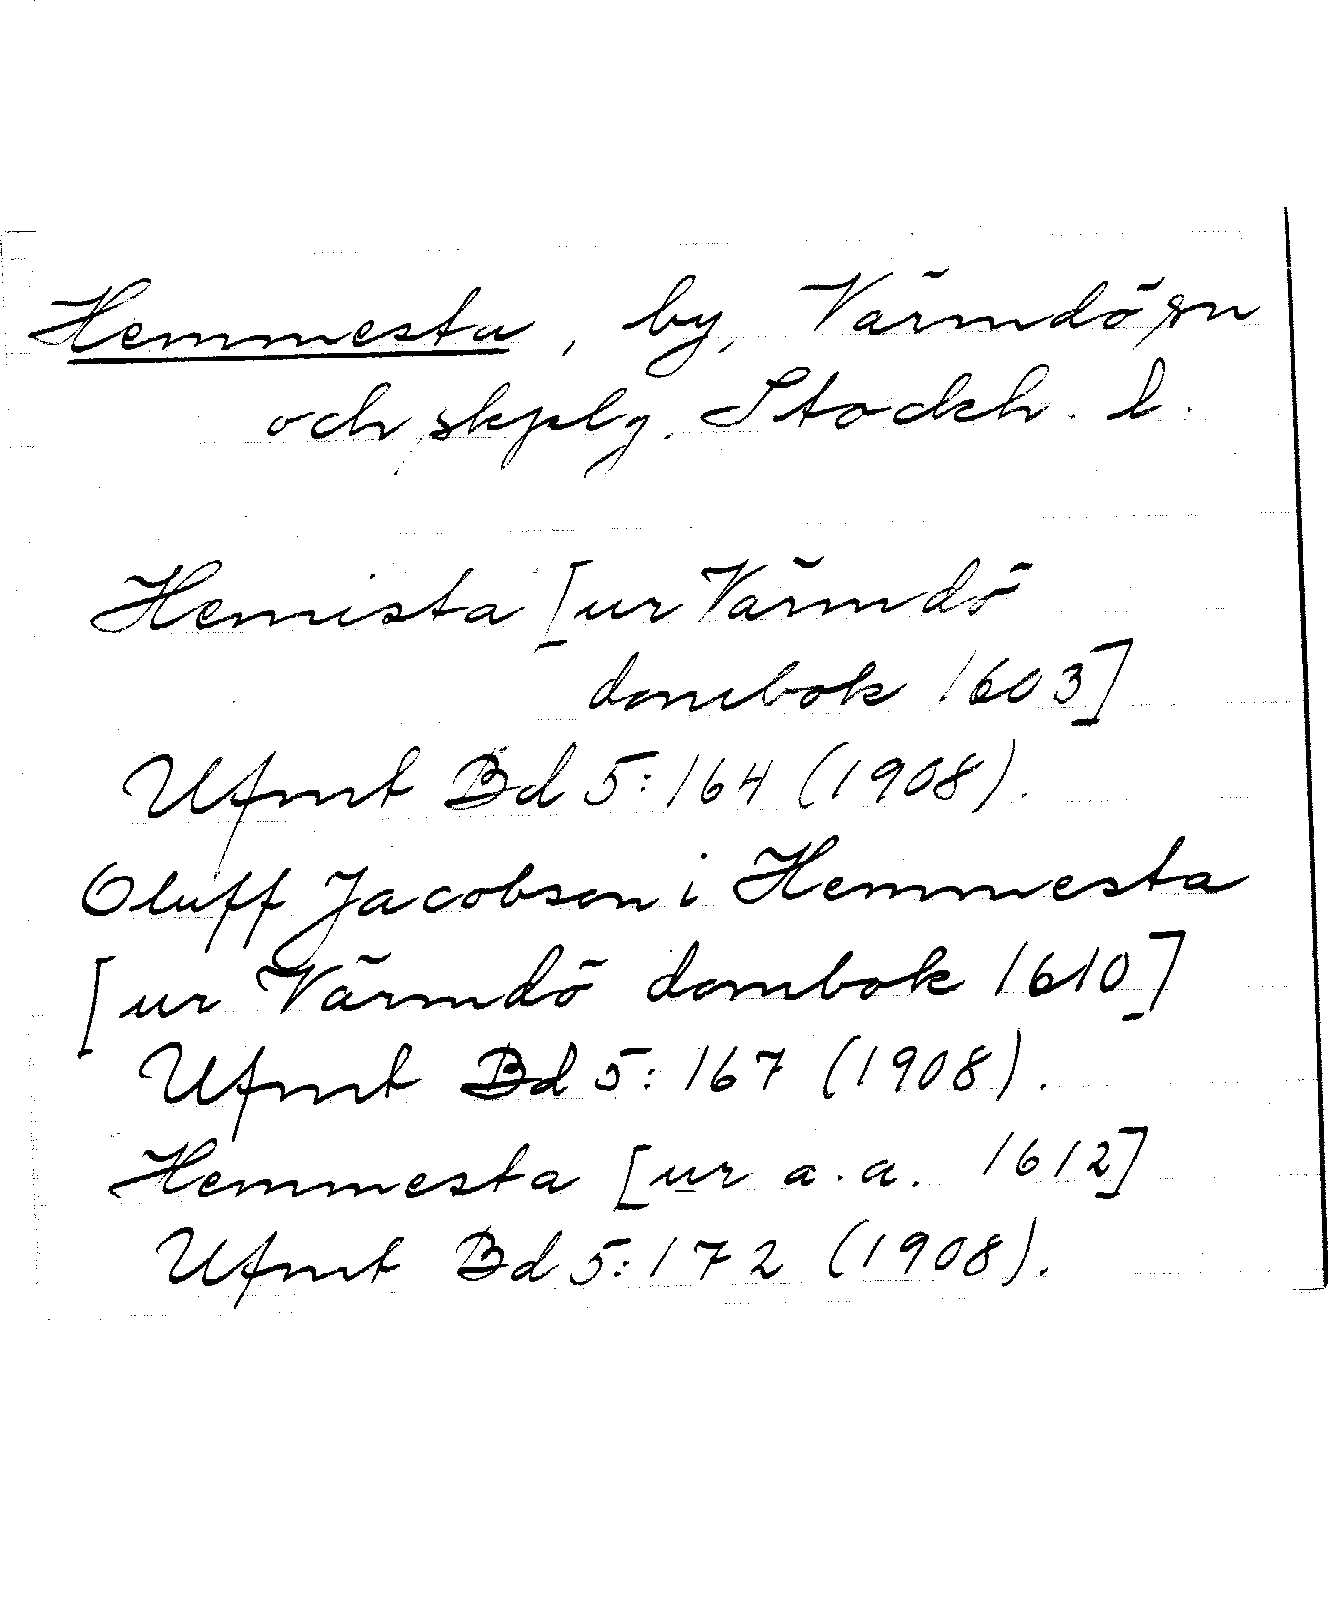 Hemmesta, by, Värmdö sn
och skplg. Stockh. l.
Hemista [ur Värmdö
dombok 1603]
Ufmt Bd 5:164 (1908).
Oluff Jacobson i Hemmesta
[ur Värmdö dombok 1610]
Ufmt Bd 5: 167 (1908).
Hemmesta [ur a.a. 1612]
Ufmt Bd 5:172 (1908).